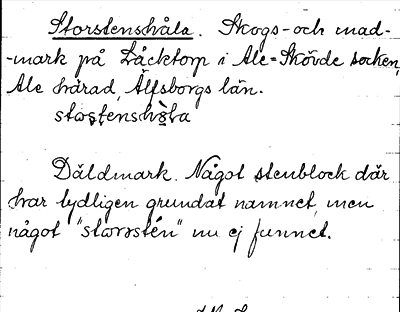 Storstenshåla. Skogs- och mad-
-mark på Läcktorp i Ale-Skövde socken,
Ale härad, Älfsborgs län.
Däldmark. Något stenblock där
har tydligen grundat namnet, men
något "storrstén" nu ej funnet.